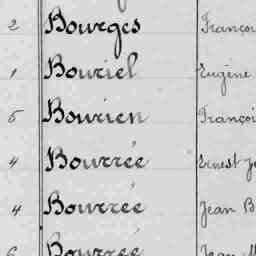 2 Bourges Françoi
1 Bouriel Eugène
5 Bourien Françoi
4 Bourrée Ernest J
4 Bourrée Jean B
6 Bourrée Jean M